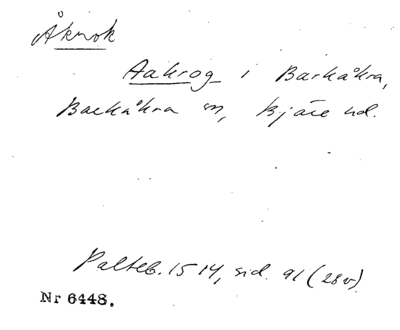 Åkrok
Aakrog i Barkåkra,
Barkåkra sn, Bjäre hd.
Palteb. 1514, sid. 91 (28v)
Nr 6448.